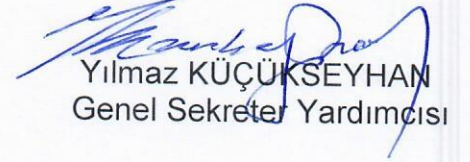 Yılmaz KÜÇÜKSEYHAN
Genel Sekreter Yardımcısı